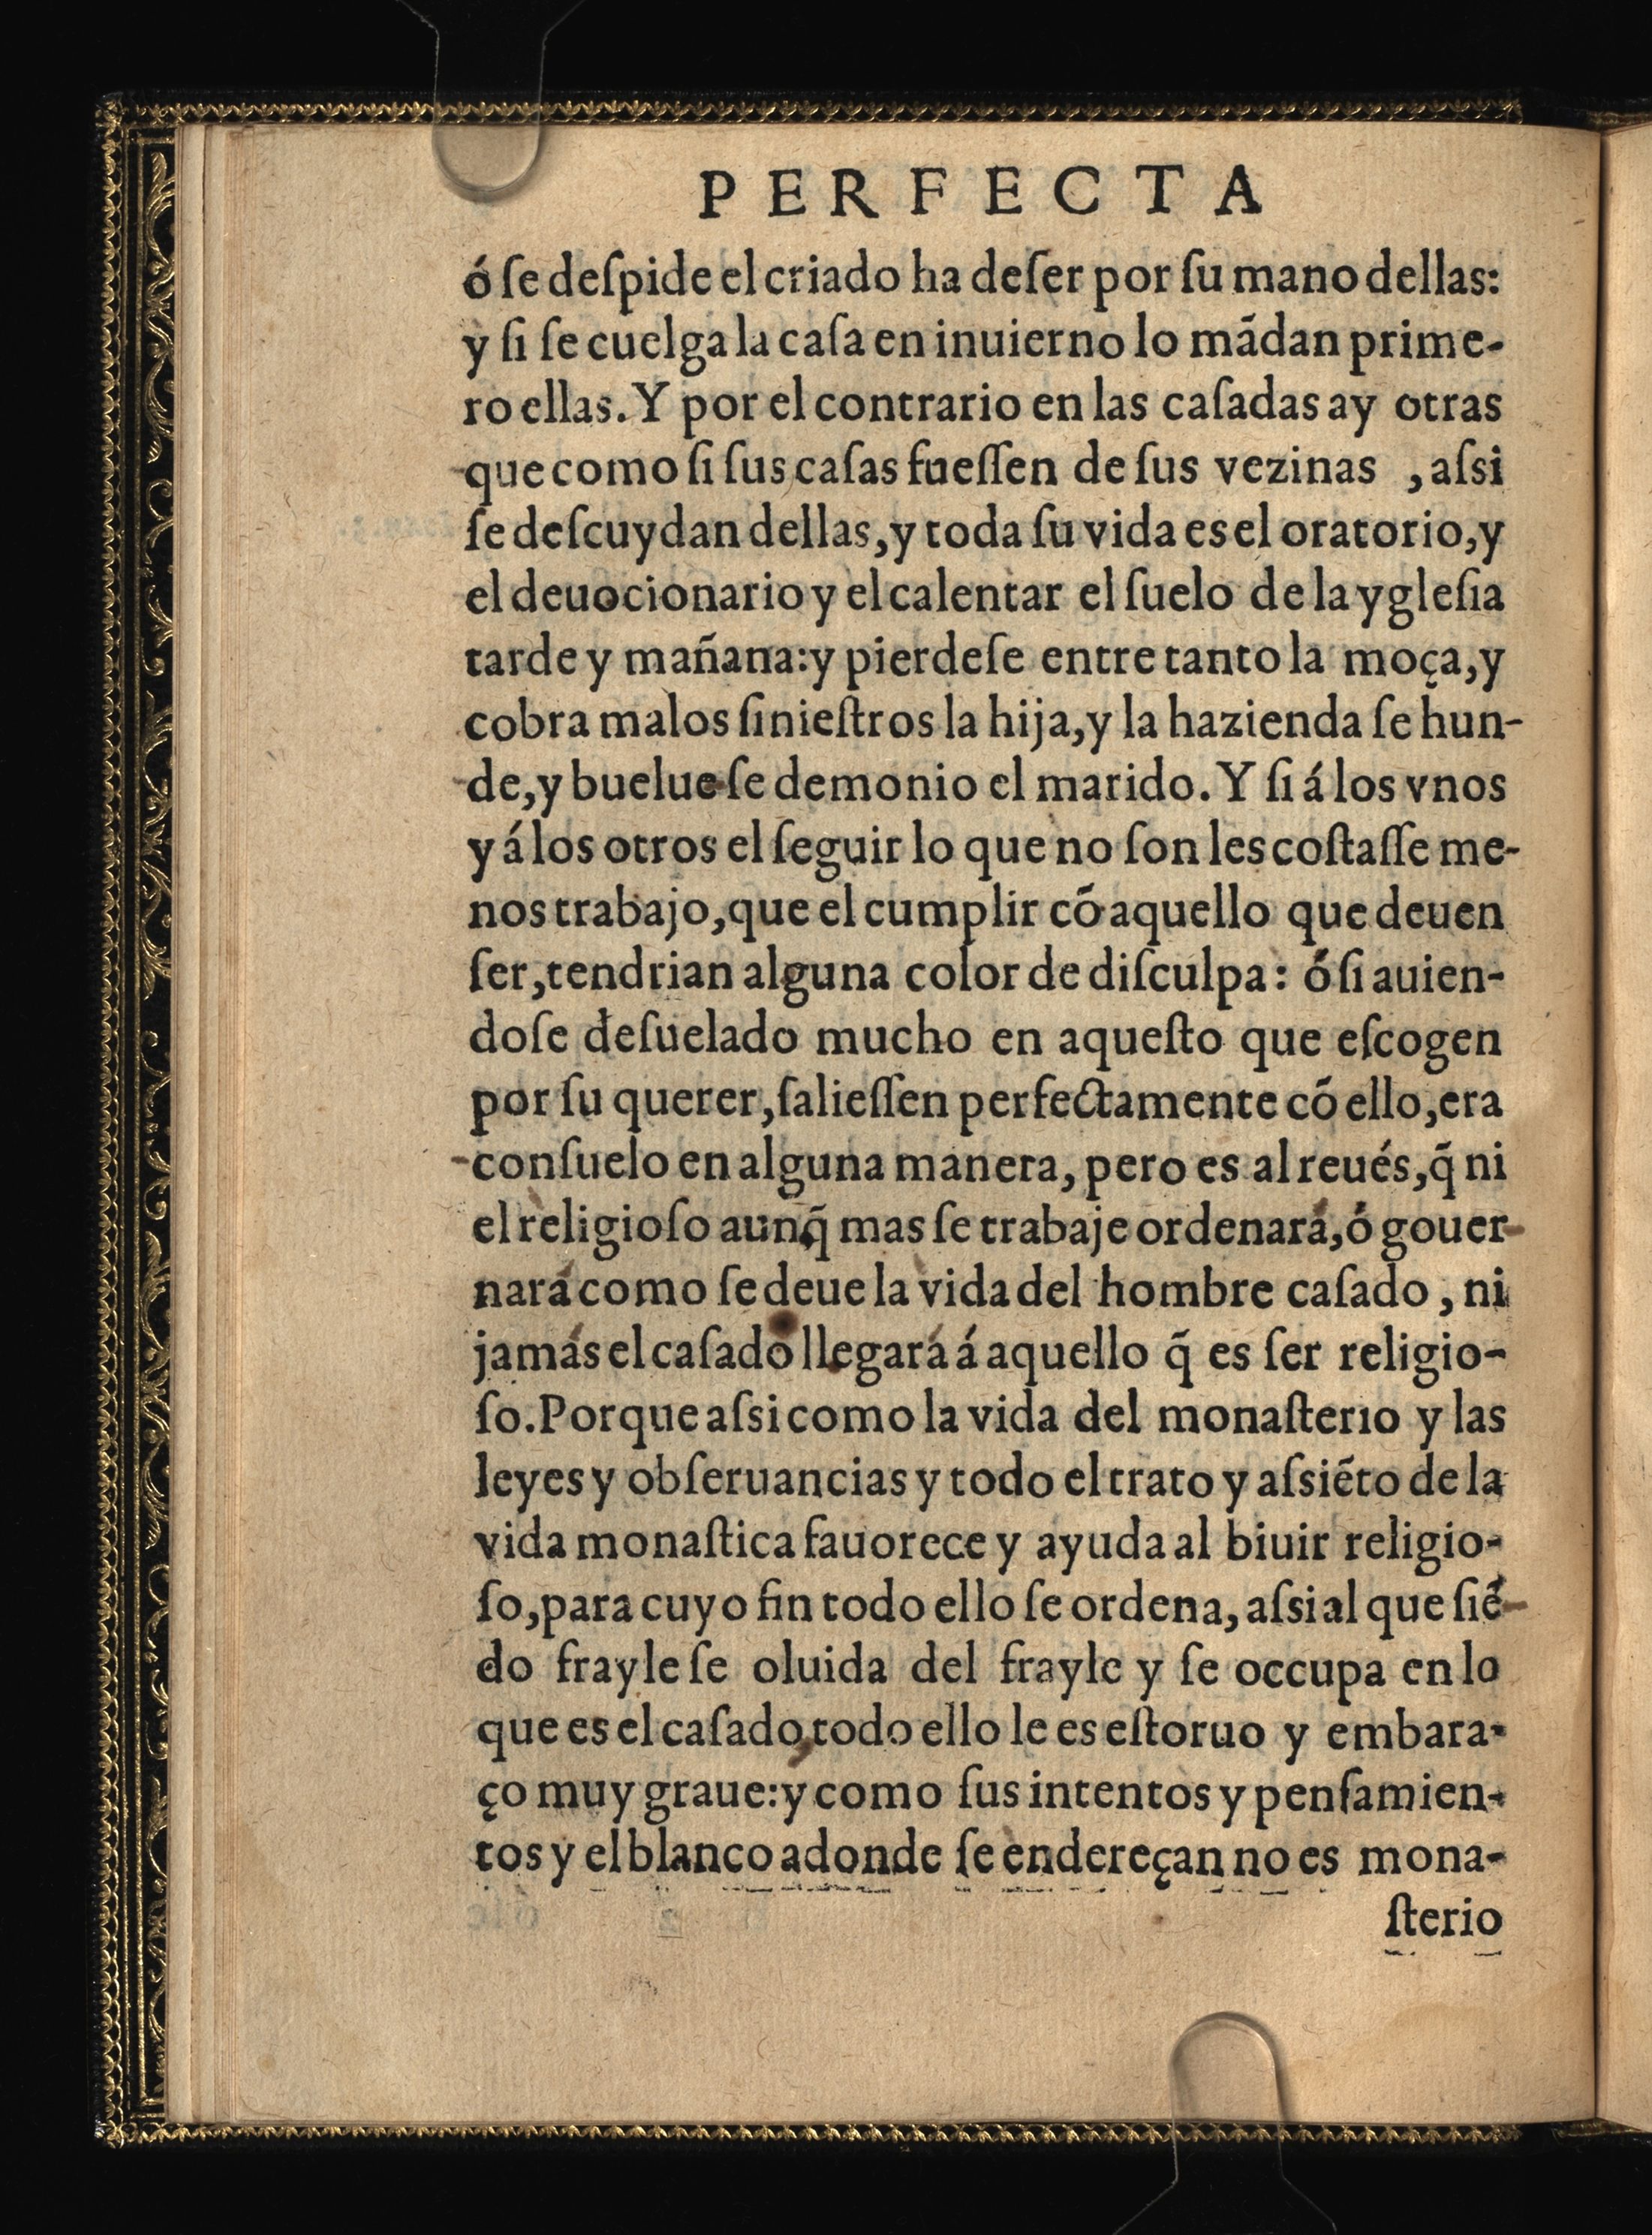 PERFECTA
ó ſe deſpide el criado ha de ſer por ſu mano dellas:
y ſi ſe cuelga la caſa en inuierno lo mãdan prime-
ro ellas. Y por el contrario en las caſadas ay otras
que como ſi ſus caſas fueſſen de ſus vezinas , aſsi
ſe deſcuydan dellas, y toda ſu vida es el oratorio, y
el deuocionario y el calentar el ſuelo de la ygleſia
tarde y mañana: y pierdeſe entre tanto la moça, y
cobra malos ſinieſtros la hija, y la hazienda ſe hun-
de, y buelueſe demonio el marido. Y ſi á los vnos
y á los otros el ſeguir lo que no ſon les coſtaſſe me-
nos trabajo, que el cumplir cõ aquello que deuen
ſer, tendrian alguna color de diſculpa: ó ſi auien-
doſe deſuelado mucho en aqueſto que eſcogen
por ſu querer, ſalieſſen perfectamente cõ ello, era
conſuelo en alguna manera, pero es al reués, q̃ ni
el religioſo aunq̃ mas ſe trabaje ordenará, ó gouer-
nará como ſe deue la vida del hombre caſado , ni
jamás el caſado llegará á aquello q̃ es ſer religio-
ſo. Porque aſsi como la vida del monaſterio y las
leyes y obſeruancias y todo el trato y aſsiẽto de la
vida monaſtica fauorece y ayuda al biuir religio-
ſo, para cuyo fin todo ello ſe ordena, aſsi al que ſiẽ-
do frayle ſe oluida del frayle y ſe occupa en lo
que es el caſado, todo ello le es eſtoruo y embara-
ço muy graue: y como ſus intentos y penſamien-
tos y el blanco adonde ſe endereçan no es mona-
ſterio